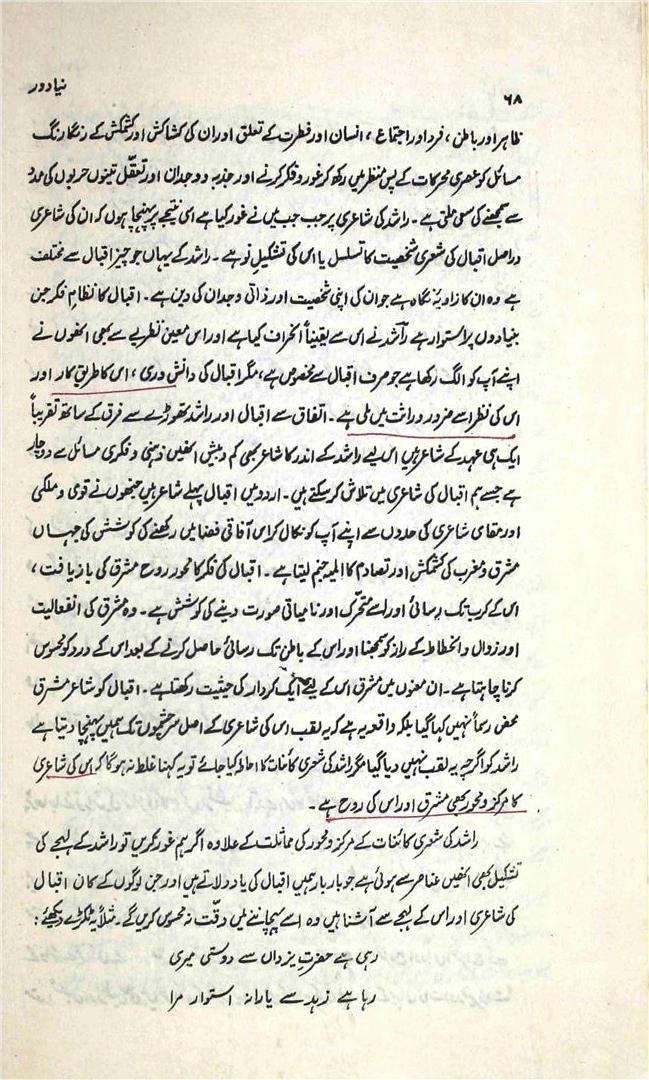 ۶۸
نیا دور
ظاہر اور باطن ، فرد اور اجتماع ، انسان اور فطرت کے تعلق اور ان کی کشاکش اور کشمکش کے رنگارنگ
مسائل کو عصری محرکات کے پس منظر میں رکھ کر غور و فکر کرنے اور جذبہ و وجدان اور تعقّل تینوں حربوں کی مدد
سے سمجھنے کی سعی ملتی ہے ۔ راشد کی شاعری پر جب جب میں نے غور کیا ہے اسی نتیجے پر پہنچا ہوں کہ ان کی شاعری
دراصل اقبال کی شعری شخصیت کا تسلسل یا اس کی تشکیلِ نو ہے ۔ راشد کے یہاں جو چیز اقبال سے مختلف
ہے وہ ان کا زاویۂ نگاہ ہے جو ان کی اپنی شخصیت اور ذاتی وجدان کی دین ہے ۔ اقبال کا نظامِ فکر جن
بنیادوں پر استوار ہے راشد نے اس سے یقیناً انحراف کیا ہے اور اس معین نظریے سے بھی انھوں نے
اپنے آپ کو الگ رکھا ہے جو صرف اقبال سے مخصوص ہے، مگر اقبال کی دانش وری ، اس کا طریقِ کار اور
اس کی نظر اسے ضرور وراثت میں ملی ہے ۔ اتفاق سے اقبال اور راشد تھوڑے سے فرق کے ساتھ تقریباً
ایک ہی عہد کے شاعر ہیں اس لیے راشد کے اندر کا شاعر بھی کم و بیش انھیں ذہنی و فکری مسائل سے دوچار
ہے جسے ہم اقبال کی شاعری میں تلاش کر سکتے ہیں ۔ اردو میں اقبال پہلے شاعر ہیں جنھوں نے قومی و ملکی
اور مقامی شاعری کی حدوں سے اپنے آپ کو نکال کر اس آفاقی فضا میں رکھنے کی کوشش کی جہاں
مشرق و مغرب کی کشمکش اور تصادم کا المیہ جنم لیتا ہے ۔ اقبال کی فکر کا محور روحِ مشرق کی بازیافت ،
اس کے کرب تک رسائی اور اسے متحرّک اور نامیاتی صورت دینے کی کوشش ہے ۔ وہ مشرق کی انفعالیت
اور زوال و انحطاط کے راز کو سمجھنا اور اس کے باطن تک رسائی حاصل کرنے کے بعد اس کے درد کو محسوس
کرنا چاہتا ہے ۔ ان معنوں میں مشرق اس کے لیے ایک کردار کی حیثیت رکھتا ہے ۔ اقبال کو شاعرِ مشرق
محض رسماً نہیں کہا گیا بلکہ واقعہ یہ ہے کہ یہ لقب اس کی شاعری کے اصل سرچشموں تک ہمیں پہنچا دیتا ہے
راشد کو اگرچہ یہ لقب نہیں دیا گیا مگر راشد کی شعری کائنات کا احاطہ کیا جائے تو یہ کہنا غلط نہ ہوگا کہ اس کی شاعری
کا مرکز و محور بھی مشرق اور اس کی روح ہے ۔
راشد کی شعری کائنات کے مرکز و محور کی مماثلت کے علاوہ اگر ہم غور کریں تو راشد کے لہجے کی
تشکیل بھی انھیں عناصر سے ہوئی ہے جو بار بار ہمیں اقبال کی یاد دلاتے ہیں اور جن لوگوں کے کان اقبال
کی شاعری اور اس کے لہجے سے آشنا ہیں وہ اسے پہچاننے میں دقّت نہ محسوس کریں گے ۔ مثلاً یہ ٹکڑے دیکھئے :
رہی ہے حضرتِ یزداں سے دوستی میری
رہا ہے زہد سے یارانہ استوار مرا